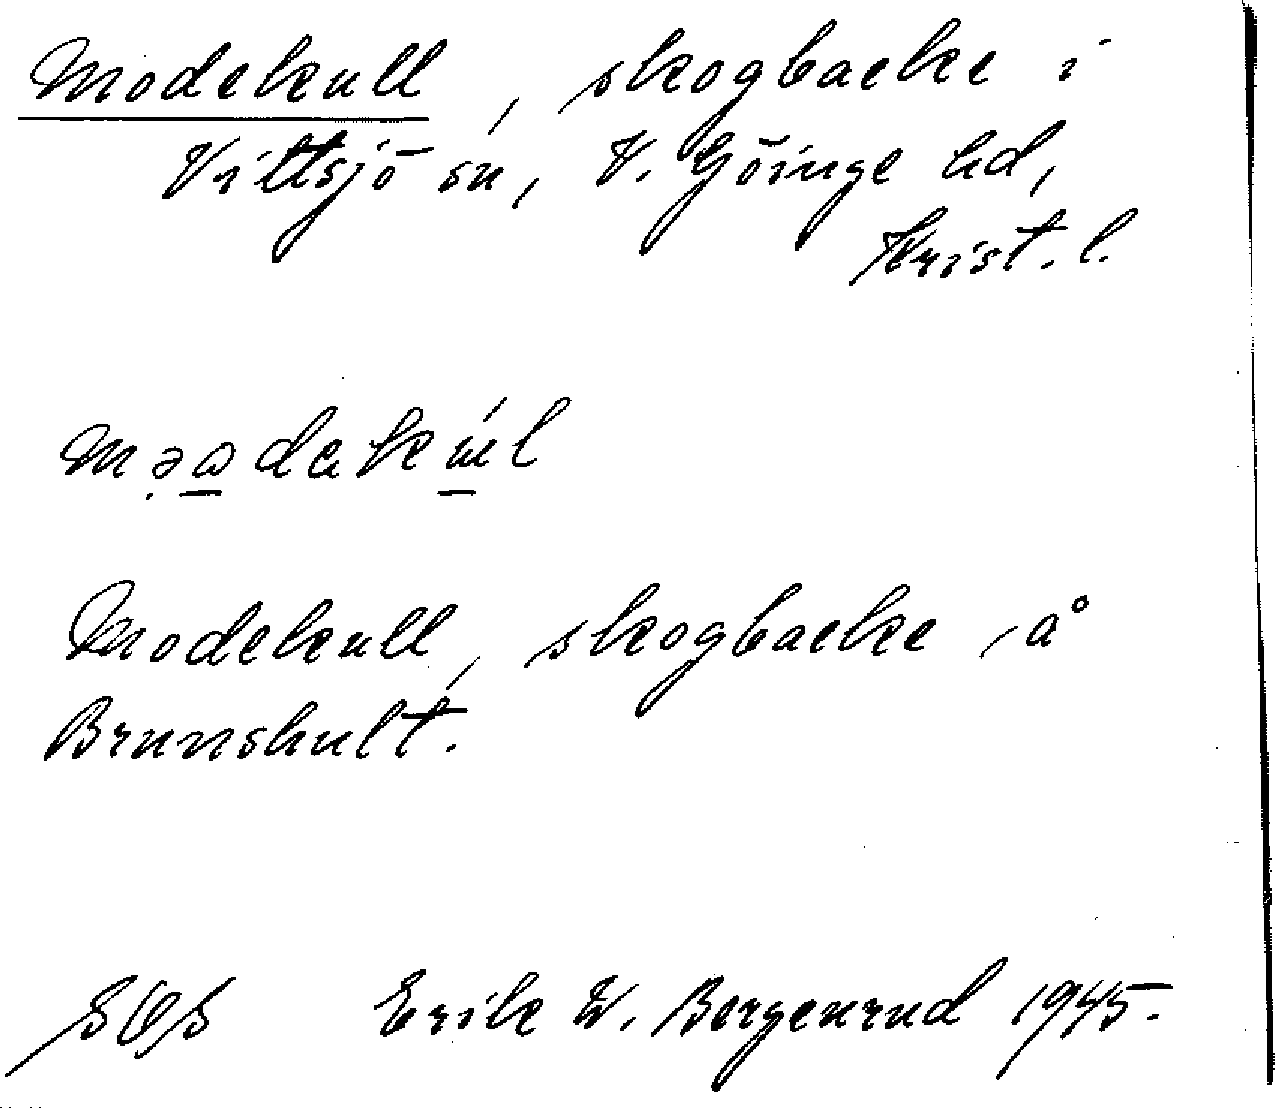 Modekull, skogbacke i
Vittsjö sn, V. Göinge hd,
Krist. l.
Modekull, skogbacke, å
Brunshult.
Erik W. Bergenrud 1945.